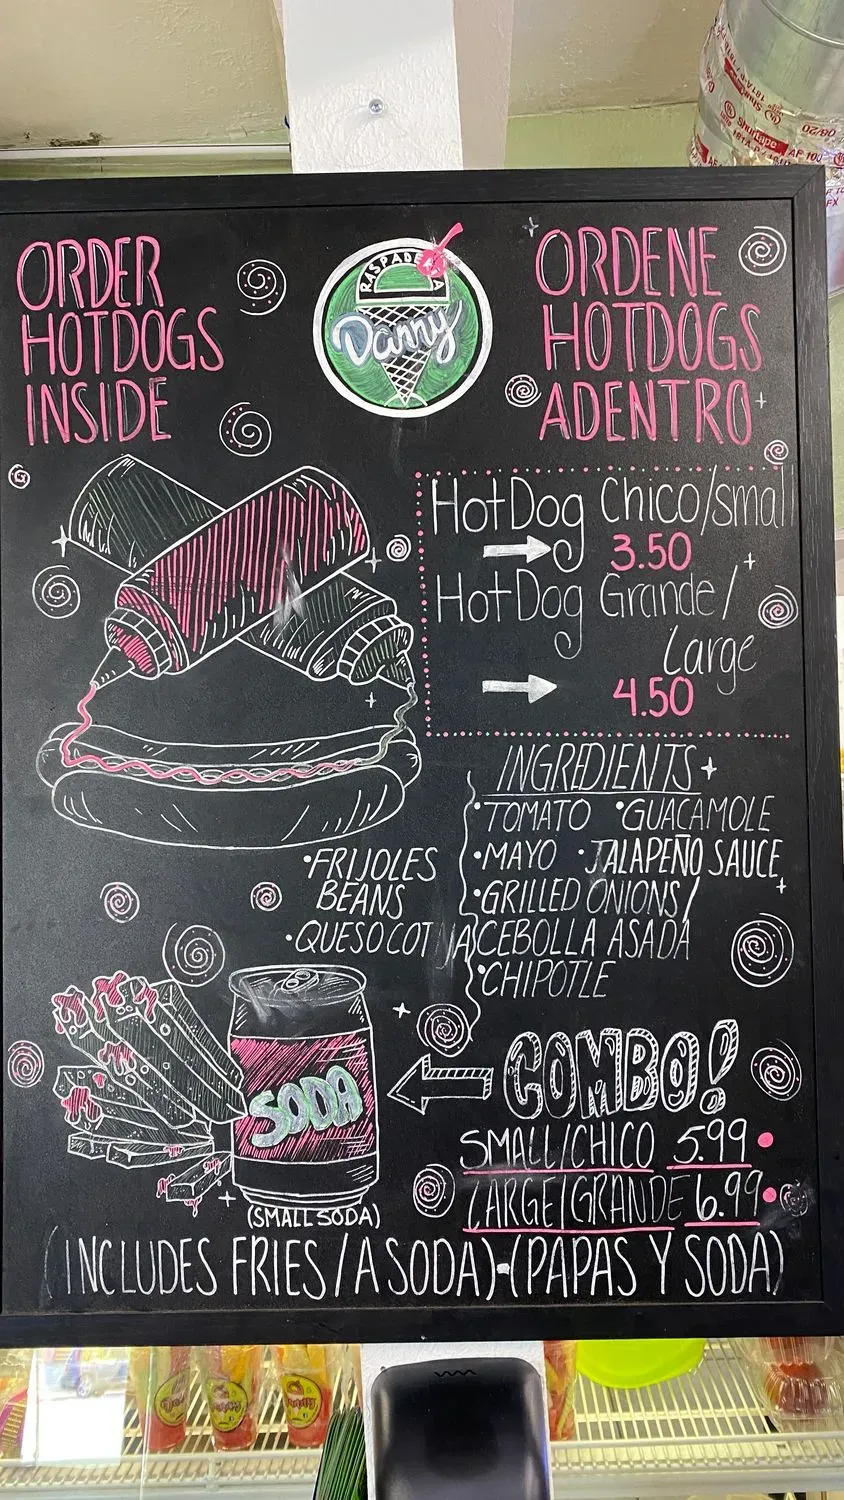 ORDER
HOTDOGS
INSIDE
RASPADERIA
Danny
ORDENE
HOTDOGS
ADENTRO
HotDog Chico/small
3.50
HotDog Grande/
Large
4.50
INGREDIENTS
•TOMATO •GUACAMOLE
•MAYO •JALAPEÑO SAUCE
•GRILLED ONIONS/
CEBOLLA ASADA
•CHIPOTLE
•FRIJOLES
BEANS
•QUESO COT JA
SODA
(SMALL SODA)
COMBO!
SMALL/CHICO 5.99
LARGE/GRANDE 6.99
(INCLUDES FRIES/A SODA)-(PAPAS Y SODA)
Shurtape
181A-P
AF 100
08/20